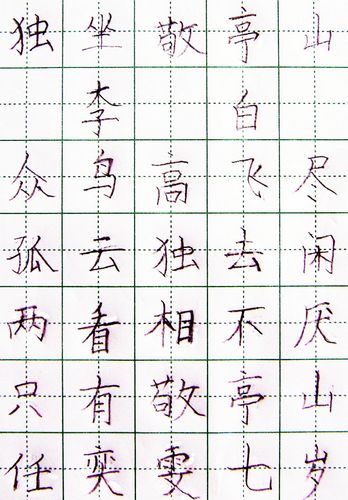 独坐敬亭山
李白
众鸟高飞尽
孤云独去闲
两看相不厌
只有敬亭山
任奕雯七岁